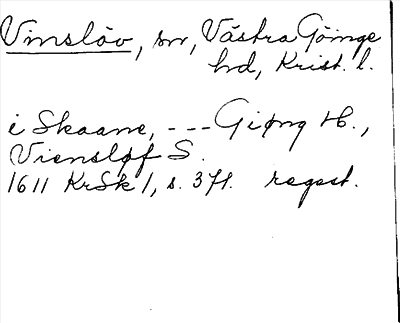 Vinslöv, sn, Västra Göinge
hd, Krist. l.
i Skaane, --- Giøng H.,
Viensløf S.
1611 KrSk 1, s. 371. regest.